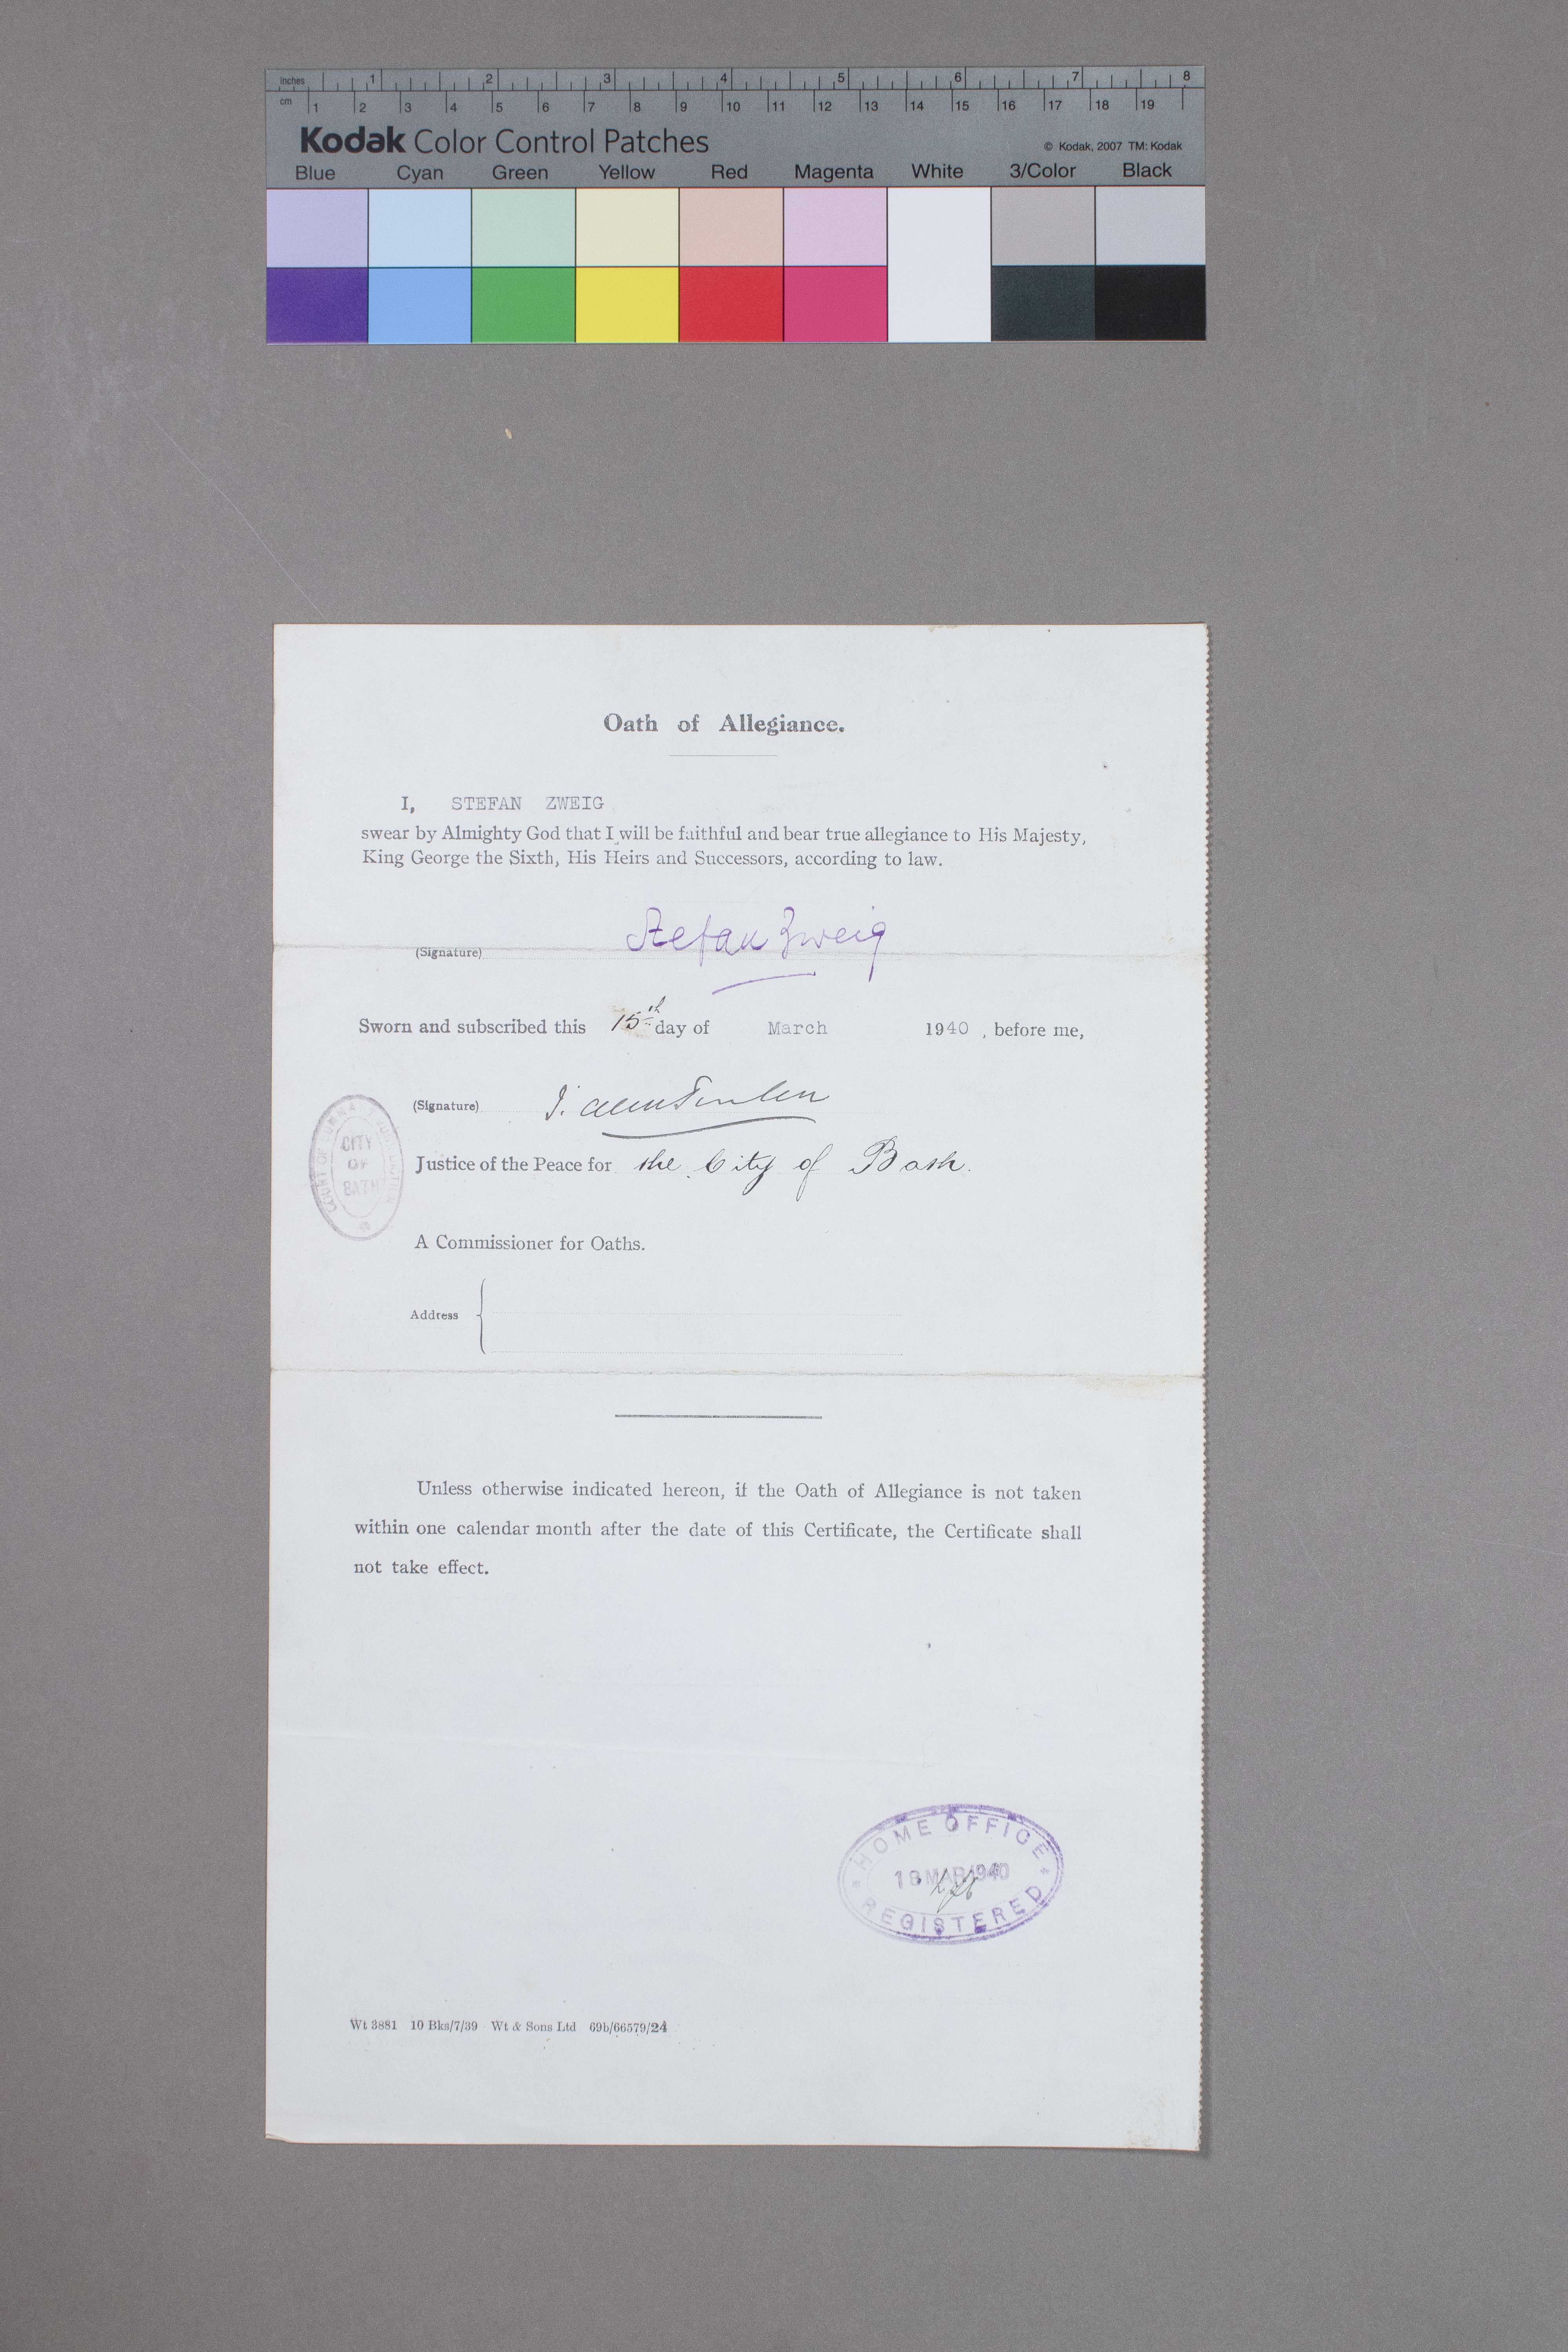 inches 1 2 3 4 5 6 7 8
cm 1 2 3 4 5 6 7 8 9 10 11 12 13 14 15 16 17 18 19
Kodak Color Control Patches
© Kodak, 2007 TM: Kodak
Blue Cyan Green Yellow Red Magenta White 3/Color Black
Oath of Allegiance.
I, STEFAN ZWEIG
swear by Almighty God that I will be faithful and bear true allegiance to His Majesty,
King George the Sixth, His Heirs and Successors, according to law.
(Signature) Stefan Zweig
Sworn and subscribed this 15th day of March 1940 , before me,
(Signature)
CITY
OF
BATH
Justice of the Peace for the City of Bath.
A Commissioner for Oaths.
Address
Unless otherwise indicated hereon, if the Oath of Allegiance is not taken
within one calendar month after the date of this Certificate, the Certificate shall
not take effect.
HOME OFFICE
18 MAR 1940
REGISTERED
Wt 3881 10 Bks/7/39 Wt & Sons Ltd 69b/66579/24